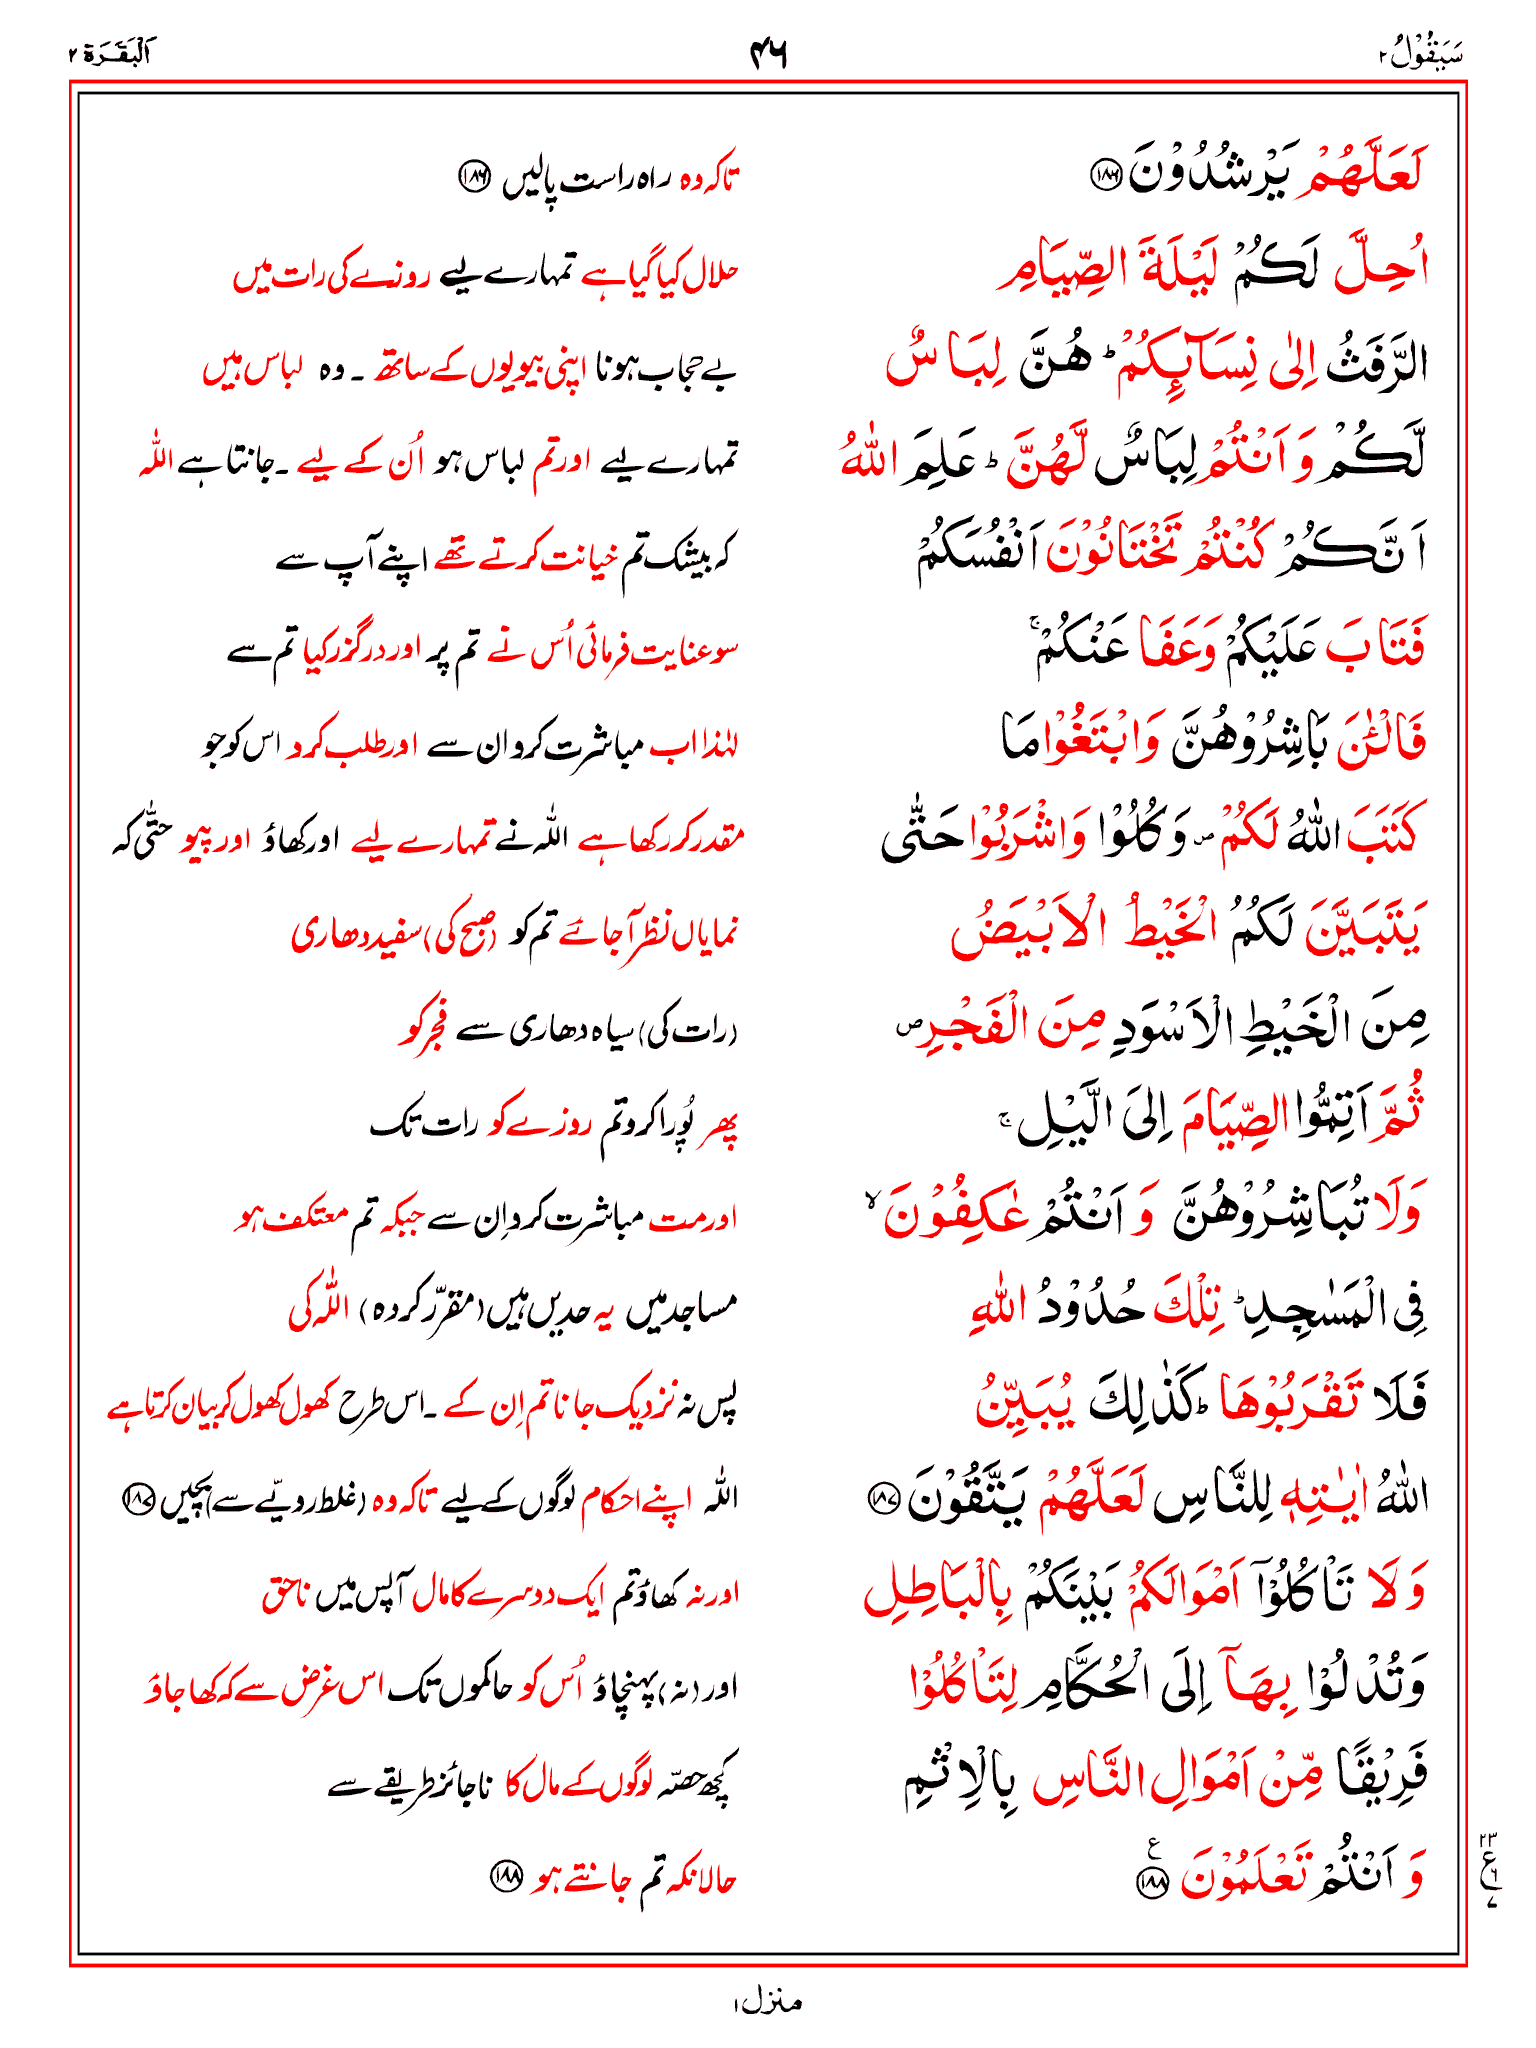 سَيَقُوْلُ ٢
٤٦
اَلْبَقَرَة ٢
لَعَلَّهُمْ يَرْشُدُوْنَ ١٨٦
تاکہ وہ راہ راست پالیں ١٨٦
اُحِلَّ لَكُمْ لَيْلَةَ الصِّيَامِ
حلال کیا گیا ہے تمہارے لیے روزے کی رات میں
الرَّفَثُ اِلٰى نِسَآئِكُمْ ؕ هُنَّ لِبَاسٌ
بے حجاب ہونا اپنی بیویوں کے ساتھ ۔ وہ لباس ہیں
لَّكُمْ وَ اَنْتُمْ لِبَاسٌ لَّهُنَّ ؕ عَلِمَ اللّٰهُ
تمہارے لیے اور تم لباس ہو اُن کے لیے ۔ جانتا ہے اللہ
اَنَّكُمْ كُنْتُمْ تَخْتَانُوْنَ اَنْفُسَكُمْ
کہ بیشک تم خیانت کرتے تھے اپنے آپ سے
فَتَابَ عَلَيْكُمْ وَعَفَا عَنْكُمْ ۚ
سو عنایت فرمائی اُس نے تم پر اور درگزر کیا تم سے
فَالْـٰٔنَ بَاشِرُوْهُنَّ وَابْتَغُوْا مَا
لہٰذا اب مباشرت کرو ان سے اور طلب کرو اس کو جو
كَتَبَ اللّٰهُ لَكُمْ ۪ وَكُلُوْا وَاشْرَبُوْا حَتّٰى
مقدر کر رکھا ہے اللہ نے تمہارے لیے اور کھاؤ اور پیو حتّٰی کہ
يَتَبَيَّنَ لَكُمُ الْخَيْطُ الْاَبْيَضُ
نمایاں نظر آجائے تم کو (صبح کی) سفید دھاری
مِنَ الْخَيْطِ الْاَسْوَدِ مِنَ الْفَجْرِ ۪
(رات کی) سیاہ دھاری سے فجر کو
ثُمَّ اَتِمُّوا الصِّيَامَ اِلَى الَّيْلِ ۚ
پھر پُورا کرو تم روزے کو رات تک
وَلَا تُبَاشِرُوْهُنَّ وَ اَنْتُمْ عٰكِفُوْنَ ۙ
اور مت مباشرت کرو اِن سے جبکہ تم معتکف ہو
فِى الْمَسٰجِدِ ؕ تِلْكَ حُدُوْدُ اللّٰهِ
مساجد میں یہ حدیں ہیں (مقرّر کردہ) اللہ کی
فَلَا تَقْرَبُوْهَا ؕ كَذٰلِكَ يُبَيِّنُ
پس نہ نزدیک جانا تم اِن کے ۔ اس طرح کھول کھول کر بیان کرتا ہے
اللّٰهُ اٰيٰتِهٖ لِلنَّاسِ لَعَلَّهُمْ يَتَّقُوْنَ ١٨٧
اللہ اپنے احکام لوگوں کے لیے تاکہ وہ (غلط رویّے سے) بچیں ١٨٧
وَلَا تَاْكُلُوْٓا اَمْوَالَكُمْ بَيْنَكُمْ بِالْبَاطِلِ
اور نہ کھاؤ تم ایک دوسرے کا مال آپس میں ناحق
وَتُدْلُوْا بِهَآ اِلَى الْحُكَّامِ لِتَاْكُلُوْا
اور (نہ) پہنچاؤ اُس کو حاکموں تک اس غرض سے کہ کھا جاؤ
فَرِيْقًا مِّنْ اَمْوَالِ النَّاسِ بِالْاِثْمِ
کچھ حصّہ لوگوں کے مال کا ناجائز طریقے سے
وَ اَنْتُمْ تَعْلَمُوْنَ ١٨٨ ع
حالانکہ تم جانتے ہو ١٨٨
٢٣
ع ٦
٧
منزل ١